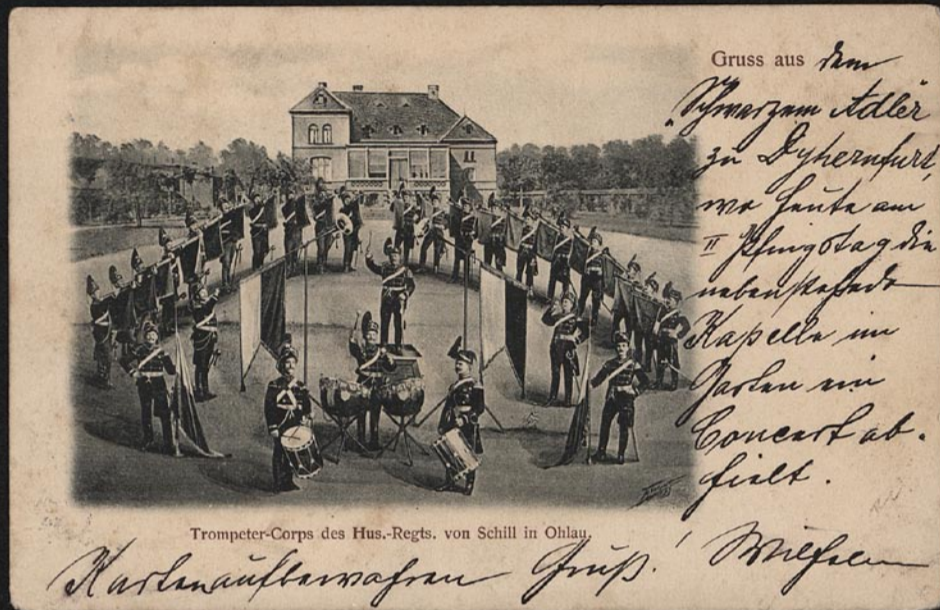 Gruss aus dem
„Schwarzem Adler"
zu Dyhernfurt,
wo heute am
II Pfingstag die
nebenstehede
Kapelle im
Garten ein
Concert ab-
hielt.
Trompeter-Corps des Hus.-Regts. von Schill in Ohlau.
Karten aufbewahren Gruß! Wilhelm